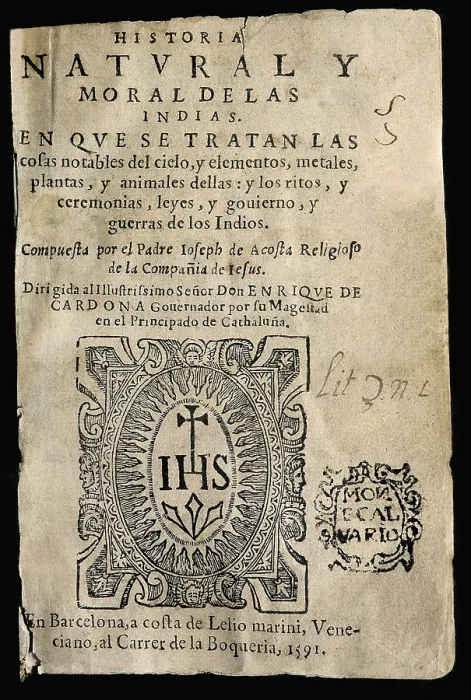 HISTORIA
NATVRAL Y
MORAL DE LAS
INDIAS.
EN QVE SE TRATAN LAS
coſas notables del cielo, y elementos, metales,
plantas, y animales dellas: y los ritos, y
ceremonias, leyes, y gouierno, y
guerras de los Indios.
Compueſta por el Padre Ioſeph de Acoſta Religioſo
de la Compañia de Ieſus.
Dirigida al Illuſtriſsimo Señor Don ENRIQVE DE
CARDONA Gouernador por ſu Mageſtad
en el Principado de Cathaluña.
IHS
MON
E CAL
VARIO
En Barcelona, a coſta de Lelio marini, Vene-
ciano, al Carrer de la Boqueria, 1591.